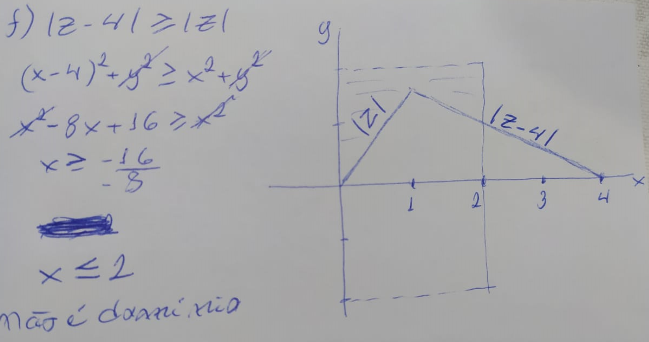 f) |z-4| ≥ |z|
(x-4)²+y² ≥ x²+y²
x²-8x+16 ≥ x²
x ≥ -16/-8
x ≤ 2
não é domínio
y
|z|
|z-4|
1 2 3 4 x